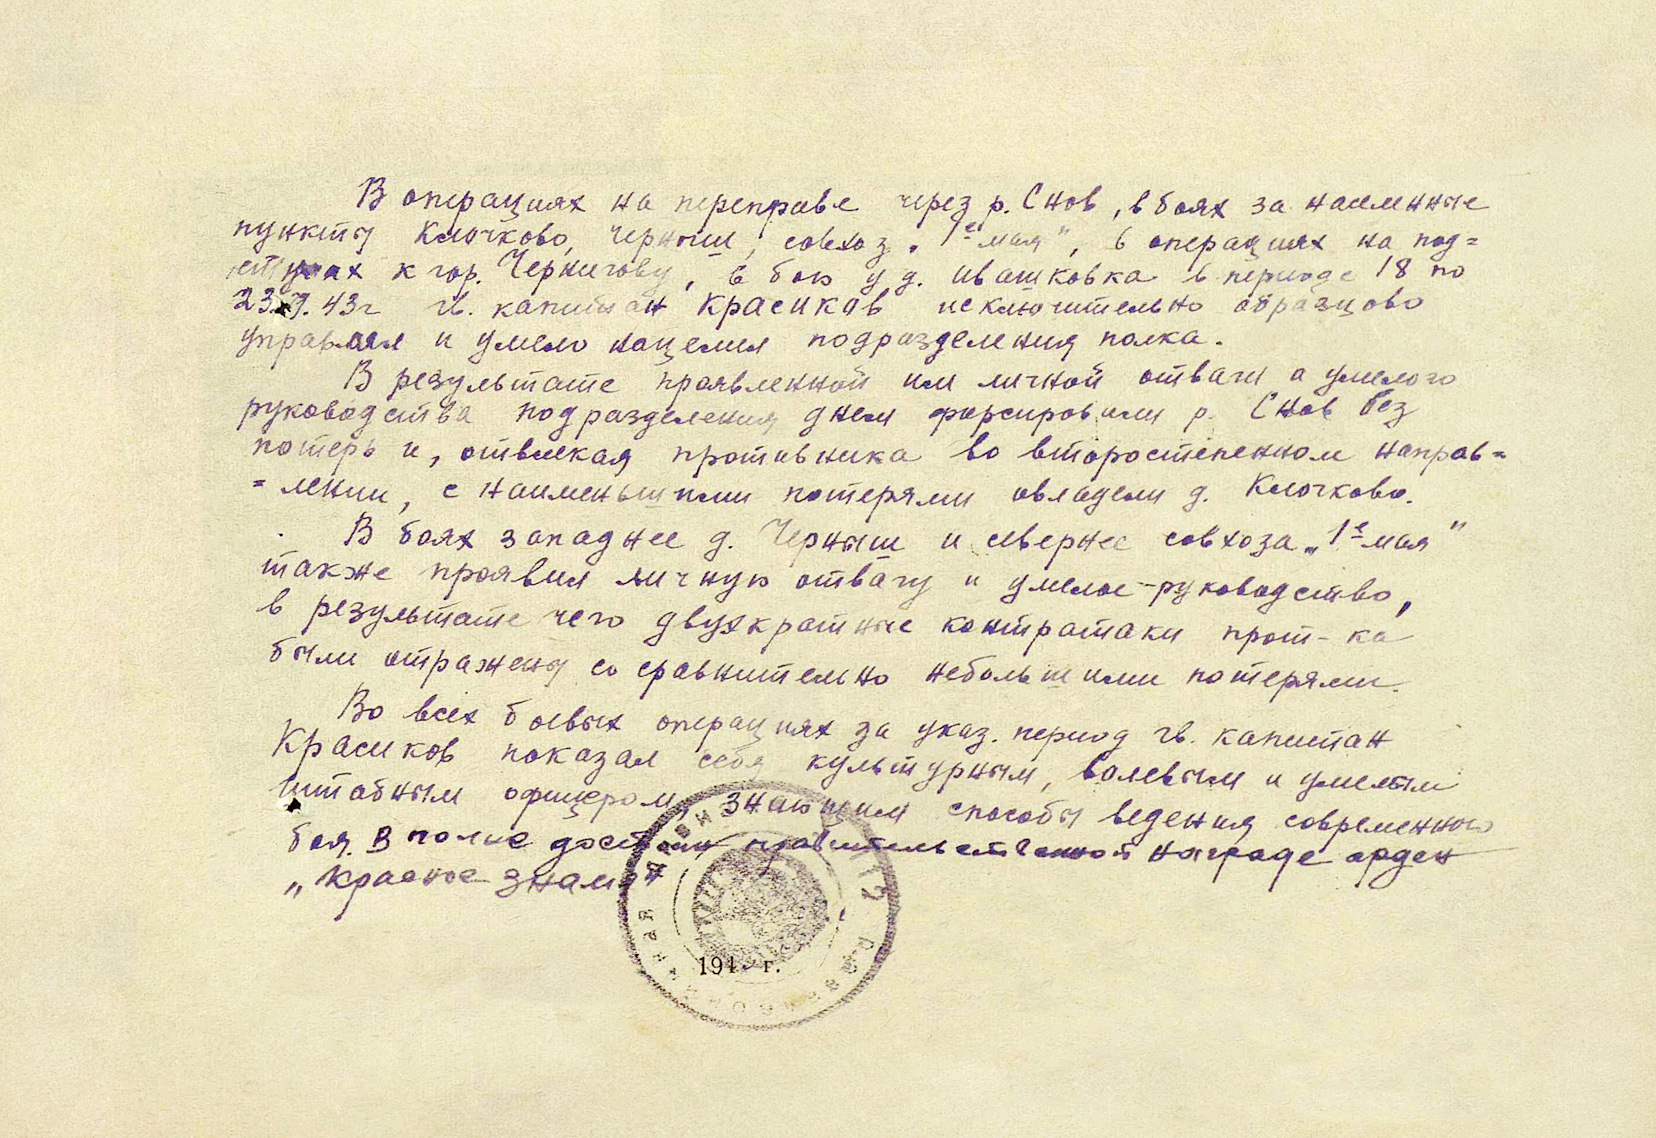 В операциях на переправе через р. Снов, в боях за населенные
пункты Клочково, Черныш, совхоз „1е мая", в операциях на под=
ступах к гор. Чернигову, в бою у д. Ивашковка в периоде 18 по
23.9.43г гв. капитан Красиков исключительно образцово
управлял и умело нацелил подразделения полка.
В результате проявленной им личной отваги и умелого
руководства подразделения днем форсировали р. Снов без
потерь и, отвлекая противника во второстепенном направ=
=лении, с наименьшими потерями овладели д. Клочково.
В боях западнее д. Черныш и севернее совхоза „1е мая"
также проявил личную отвагу и умелое руководство,
в результате чего двухкратные контратаки прот-ка
были отражены со сравнительно небольшими потерями.
Во всех боевых операциях за указ. период гв. капитан
Красиков показал себя культурным, волевым и умелым
штабным офицером, знающим способы ведения современного
боя. Вполне достоин правительственной награде орден
„Красное знамя"
194 г.